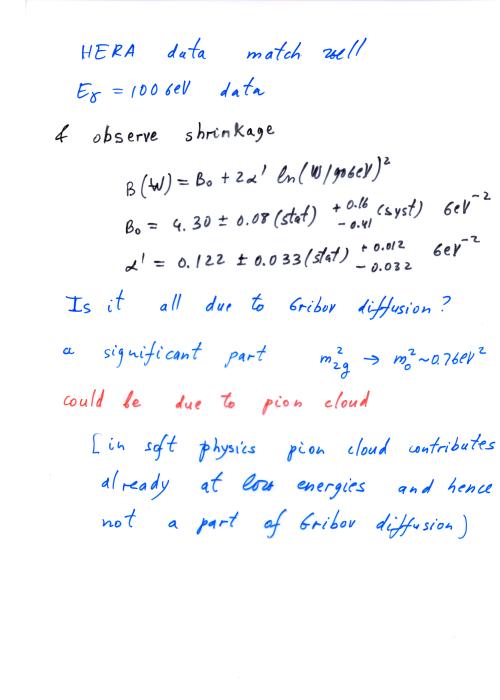 HERA data match well
Eγ = 100 GeV data
& observe shrinkage
B(W) = B₀ + 2α' ln(W/90GeV)²
B₀ = 4.30 ± 0.08 (stat) + 0.16 - 0.41 (syst) GeV⁻²
α' = 0.122 ± 0.033 (stat) + 0.012 - 0.032 GeV⁻²
Is it all due to Gribov diffusion?
a significant part m²₂g → m₀² ~ 0.7GeV²
could be due to pion cloud
[in soft physics pion cloud contributes
already at low energies and hence
not a part of Gribov diffusion)